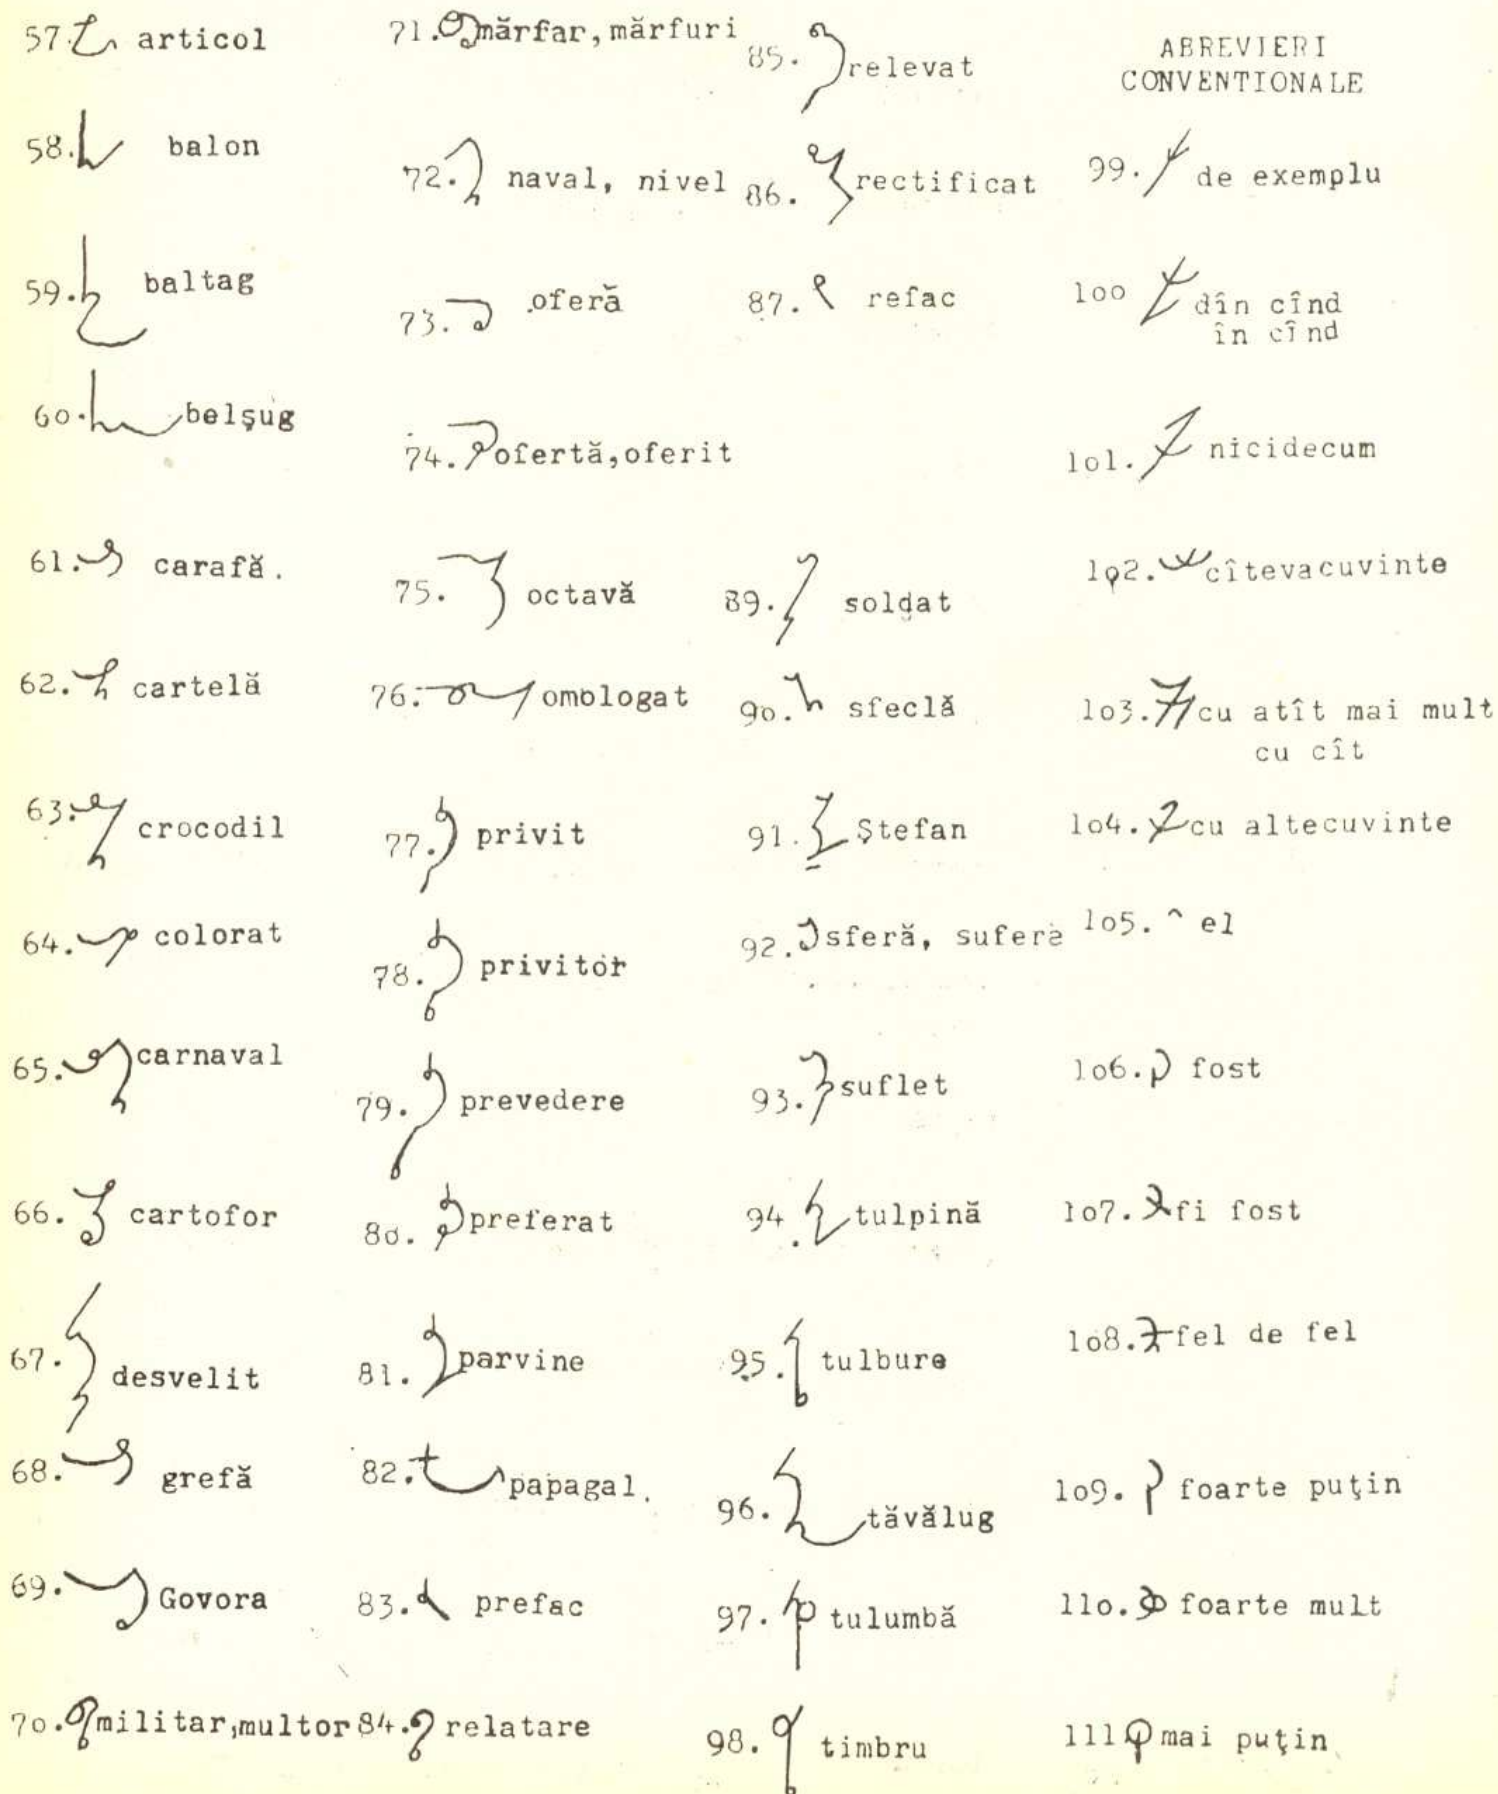 57. articol
58. balon
59. baltag
60. belşug
61. carafă.
62. cartelă
63. crocodil
64. colorat
65. carnaval
66. cartofor
67. desvelit
68. grefă
69. Govora
70. militar,multor
71. mărfar, mărfuri
72. naval, nivel
73. oferă
74. ofertă,oferit
75. octavă
76. omologat
77. privit
78. privitor
79. prevedere
80. preferat
81. parvine
82. papagal.
83. prefac
84. relatare
85. relevat
86. rectificat
87. refac
89. soldat
90. sfeclă
91. Ştefan
92. sferă, sufere
93. suflet
94. tulpină
95. tulbure
96. tăvălug
97. tulumbă
98. timbru
ABREVIERI
CONVENTIONALE
99. de exemplu
100 dîn cînd
în cînd
101. nicidecum
102. cîtevacuvinte
103. cu atît mai mult
cu cît
104. cu altecuvinte
105. el
106. fost
107. fi fost
108. fel de fel
109. foarte puţin
110. foarte mult
111 mai puţin